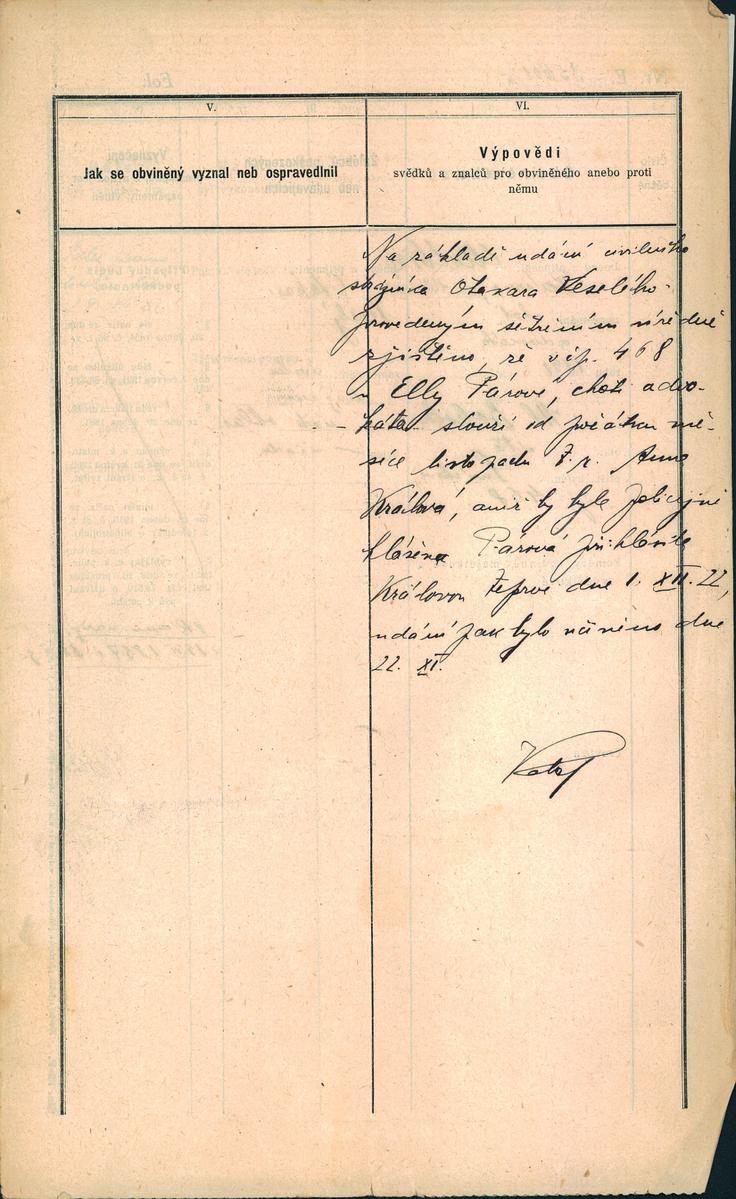 V.
Jak se obviněný vyznal neb ospravedlnil
VI.
Výpovědi
svědků a znalců pro obviněného anebo proti
němu
Na základě udání civilního
strážníka Otakara Veselého
provedeným šetřením úředně
zjištěno, že v čp. 468
u Elly Párové, choti advo-
káta slouží od počátku mě-
síce listopadu t. r. Anna
Králová, aniž by byla policejně
hlášena Párová přihlásila
Královou teprve dne 1. XII. 22,
udání pak bylo učiněno dne
22. XI.